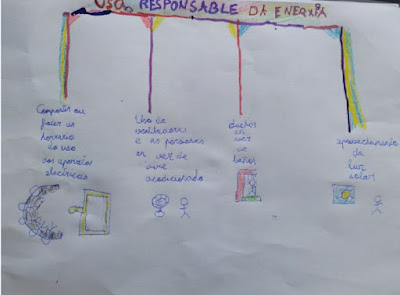 USO RESPONSABLE DA ENERXÍA
Compartir ou
facer un
horario
do uso
dos aparatos
electricos
Uso de
ventiladores
e as persoanas
en vez de
aire
acodicionado
duchas
en
vez
de
baños
aproveitamento
da
luz
solar